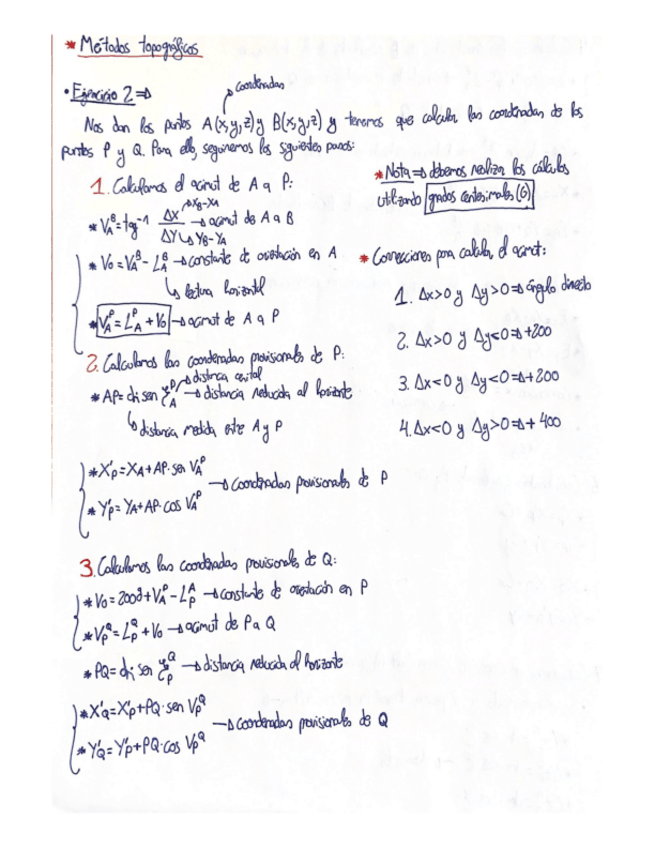 * Métodos topográficos
• Ejercicio 2 ⇒
coordenadas
Nos dan los puntos A(x,y,z) y B(x,y,z) y tenemos que calcular las coordenadas de los
puntos P y Q. Para ello, seguiremos los siguientes pasos:
1. Calculamos el acimut de A a P:
* V_A^B = tg⁻¹ ΔX/ΔY → acimut de A a B
→ X_B - X_A
↳ Y_B - Y_A
* V₀ = V_A^B - L_A^B → constante de orientación en A
↳ lectura horizontal
* V_A^P = L_A^P + V₀ → acimut de A a P
2. Calculamos las coordenadas provisionales de P:
→ distancia cenital
* AP = di sen ξ_A^P → distancia reducida al horizonte
↳ distancia medida entre A y P
* X'_P = X_A + AP · sen V_A^P
* Y'_P = Y_A + AP · cos V_A^P
→ coordenadas provisionales de P
3. Calculamos las coordenadas provisionales de Q:
* V₀ = 200g + V_A^P - L_P^A → constante de orientación en P
* V_P^Q = L_P^Q + V₀ → acimut de P a Q
* PQ = di sen ξ_P^Q → distancia reducida al horizonte
* X'_Q = X'_P + PQ · sen V_P^Q
* Y'_Q = Y'_P + PQ · cos V_P^Q
→ coordenadas provisionales de Q
* Nota ⇒ debemos realizar los cálculos
utilizando grados centesimales (G)
* Correcciones para calcular el acimut:
1. Δx>0 y Δy>0 ⇒ ángulo directo
2. Δx>0 y Δy<0 ⇒ +200
3. Δx<0 y Δy<0 ⇒ +200
4. Δx<0 y Δy>0 ⇒ +400